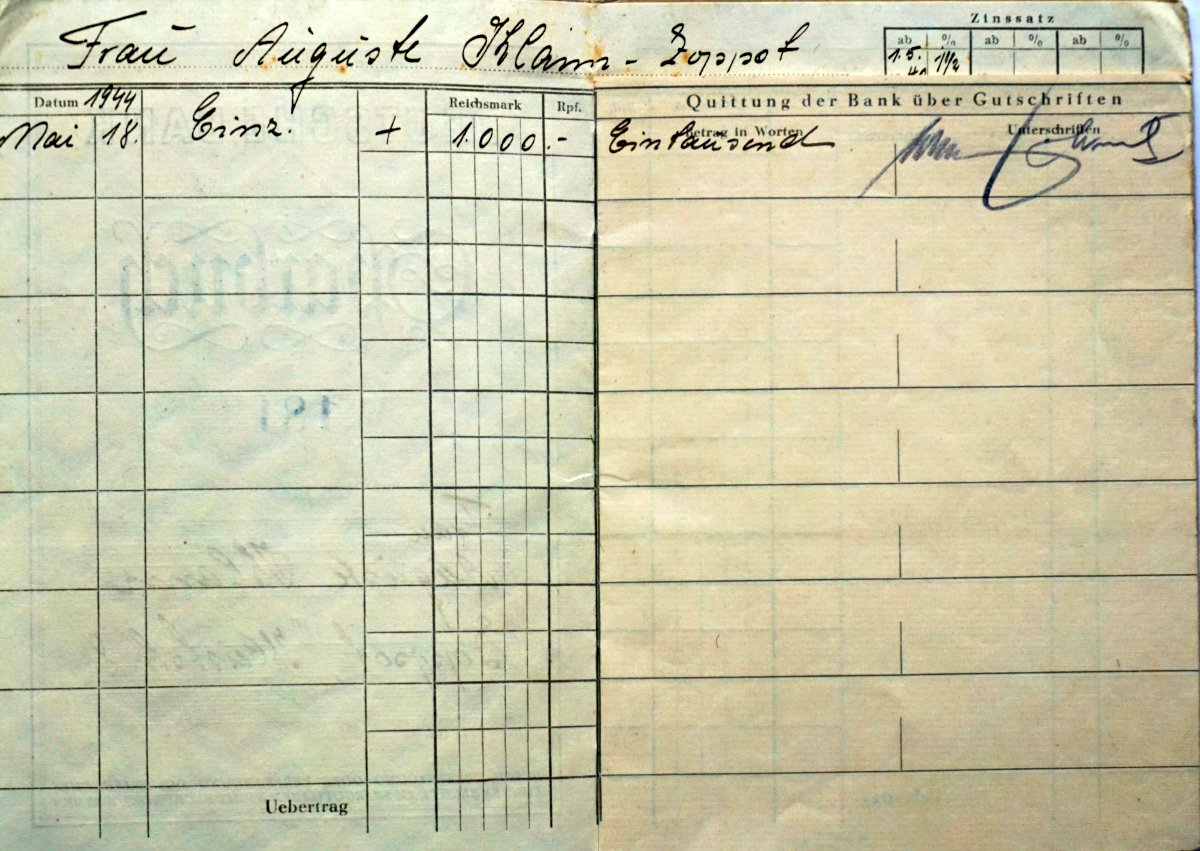 Zinssatz
Frau Auguste Klann - Zoppot
ab % ab % ab %
1.5. 1½
Datum 1944 Reichsmark Rpf. Quittung der Bank über Gutschriften
Betrag in Worten Unterschriften
Mai 18. Einz. + 1.000.- Eintausend
Sparbuch
181
Uebertrag